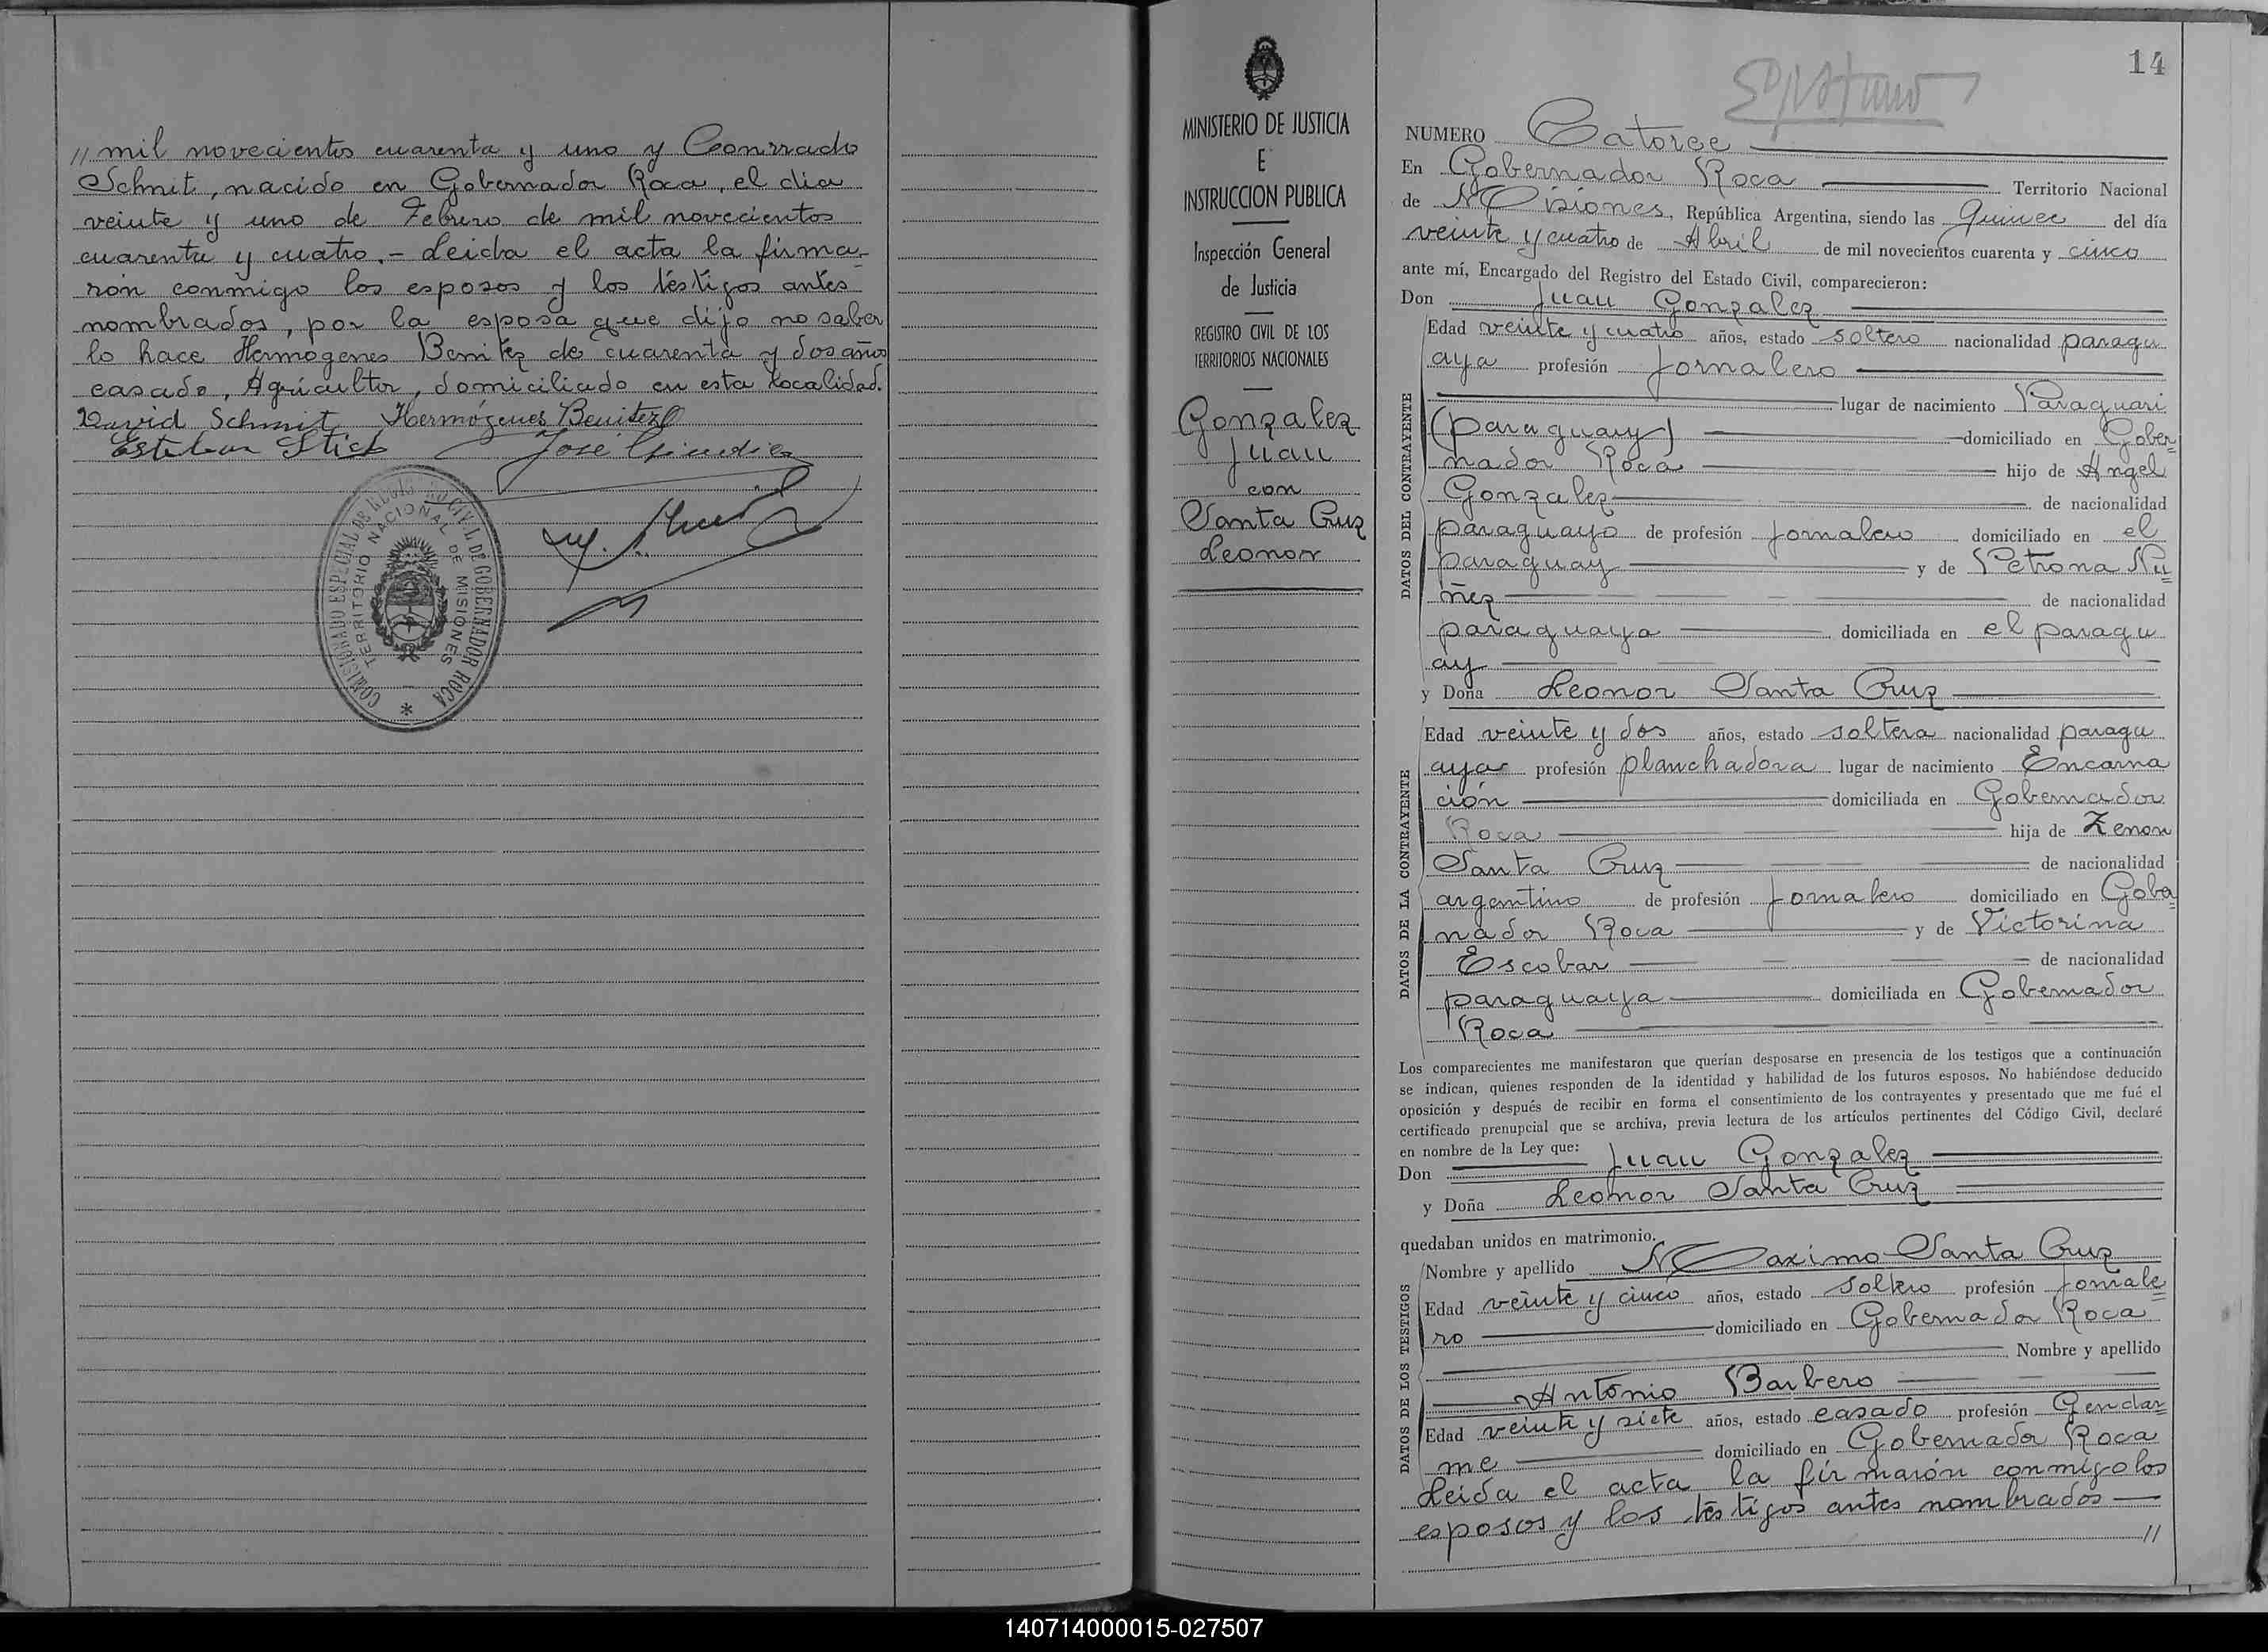 // mil novecientos cuarenta y uno y Conrrado
Schmit, nacido en Gobernador Roca, el dia
veinte y uno de Febrero de mil novecientos
cuarenta y cuatro.- Leida el acta la firma-
rón conmigo los esposos y los téstigos antes
nombrados, por la esposa que dijo no saber
lo hace Hermogenes Benitez de cuarenta y dos años
casado, Agricultor, domiciliado en esta localidad.
David Schmit Hermógenes Benitez
Esteban José
COMISIONADO ESPECIAL DE REGISTRO CIVIL DE GOBERNADOR ROCA
TERRITORIO NACIONAL DE MISIONES
*
MINISTERIO DE JUSTICIA
E
INSTRUCCION PUBLICA
Inspección General
de Justicia
REGISTRO CIVIL DE LOS
TERRITORIOS NACIONALES
Gonzalez
Juan
con
Santa Cruz
Leonor
14
NUMERO Catorce
En Gobernador Roca Territorio Nacional
de Misiones, República Argentina, siendo las Quince del día
veinte y cuatro de Abril de mil novecientos cuarenta y cinco
ante mí, Encargado del Registro del Estado Civil, comparecieron:
Don Juan Gonzalez
DATOS DEL CONTRAYENTE
Edad veinte y cuatro años, estado soltero nacionalidad paragu
aya profesión Jornalero
lugar de nacimiento Paraguari
(paraguay) domiciliado en Gober=
nador Roca hijo de Angel
Gonzalez de nacionalidad
paraguayo de profesión Jornalero domiciliado en el
paraguay y de Petrona Nu=
ñez de nacionalidad
paraguaya domiciliada en el paragu
ay
y Doña Leonor Santa Cruz
DATOS DE LA CONTRAYENTE
Edad veinte y dos años, estado soltera nacionalidad paragu
aya profesión planchadora lugar de nacimiento Encarna
ción domiciliada en Gobernador
Roca hija de Zenon
Santa Cruz de nacionalidad
argentino de profesión Jornalero domiciliado en Gober=
nador Roca y de Victorina
Escobar de nacionalidad
paraguaya domiciliada en Gobernador
Roca
Los comparecientes me manifestaron que querían desposarse en presencia de los testigos que a continuación
se indican, quienes responden de la identidad y habilidad de los futuros esposos. No habiéndose deducido
oposición y después de recibir en forma el consentimiento de los contrayentes y presentado que me fué el
certificado prenupcial que se archiva, previa lectura de los artículos pertinentes del Código Civil, declaré
en nombre de la Ley que:
Don Juan Gonzalez
y Doña Leonor Santa Cruz
quedaban unidos en matrimonio.
DATOS DE LOS TESTIGOS
Nombre y apellido Maximo Santa Cruz
Edad veinte y cinco años, estado soltero profesión Jornale=
ro domiciliado en Gobernador Roca
Nombre y apellido
Antonio Barbero
Edad veinte y siete años, estado casado profesión Gendar=
me domiciliado en Gobernador Roca
Leida el acta la firmarón conmigo los
esposos y los téstigos antes nombrados
//
140714000015-027507